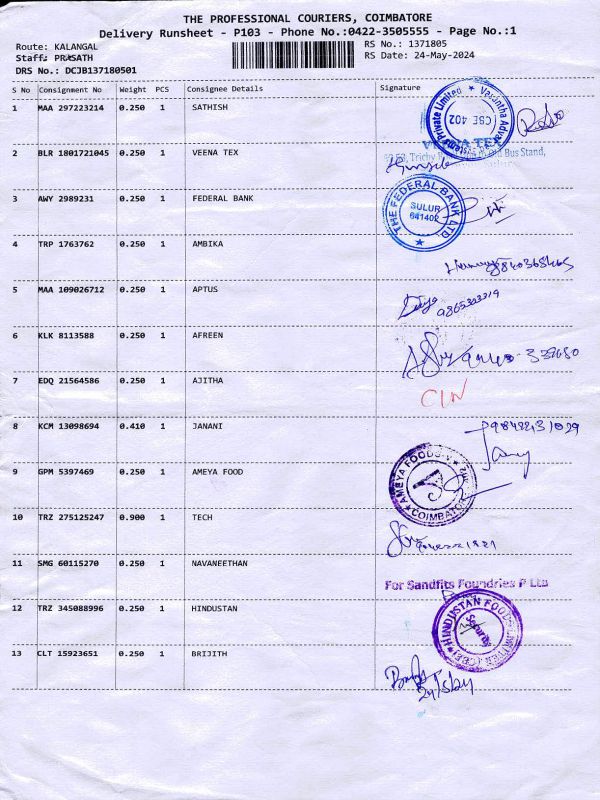 THE PROFESSIONAL COURIERS, COIMBATORE
Delivery Runsheet - P103 - Phone No.:0422-3505555 - Page No.:1
Route: KALANGAL
RS No.: 1371805
Staff: PRASATH
RS Date: 24-May-2024
DRS No.: DCJB137180501
S No Consignment No Weight PCS Consignee Details Signature
1 MAA 297223214 0.250 1 SATHISH
Private Limited ★ Varintha CBE 402
2 BLR 1801721045 0.250 1 VEENA TEX
Trichy Bus Stand,
3 AWY 2989231 0.250 1 FEDERAL BANK
THE FEDERAL BANK LTD SULUR 641402
4 TRP 1763762 0.250 1 AMBIKA
5 MAA 109026712 0.250 1 APTUS
6 KLK 8113588 0.250 1 AFREEN
7 EDQ 21564586 0.250 1 AJITHA
8 KCM 13098694 0.410 1 JANANI
9 GPM 5397469 0.250 1 AMEYA FOOD
AMEYA FOODS COIMBATORE
10 TRZ 275125247 0.900 1 TECH
11 SMG 60115270 0.250 1 NAVANEETHAN
For Sandfits Foundries P Ltd
12 TRZ 345088996 0.250 1 HINDUSTAN
HINDUSTAN FOODS LIMITED (CBE) Security
13 CLT 15923651 0.250 1 BRIJITH
24/5/24